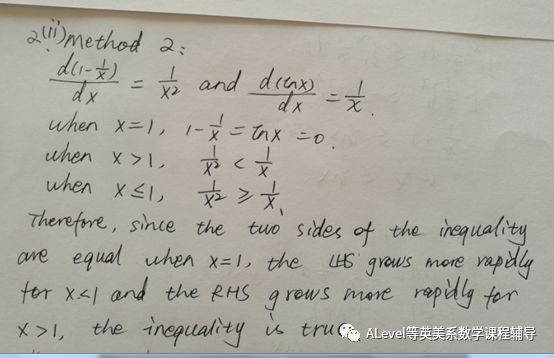 2(ii) Method 2:
d(1-1/x)/dx = 1/x² and d(lnx)/dx = 1/x.
when x=1, 1-1/x = lnx = 0.
when x>1, 1/x² < 1/x
when x≤1, 1/x² ≥ 1/x,
Therefore, since the two sides of the inequality
are equal when x=1, the LHS grows more rapidly
for x<1 and the RHS grows more rapidly for
x>1, the inequality is tru
ALevel等英美系数学课程辅导